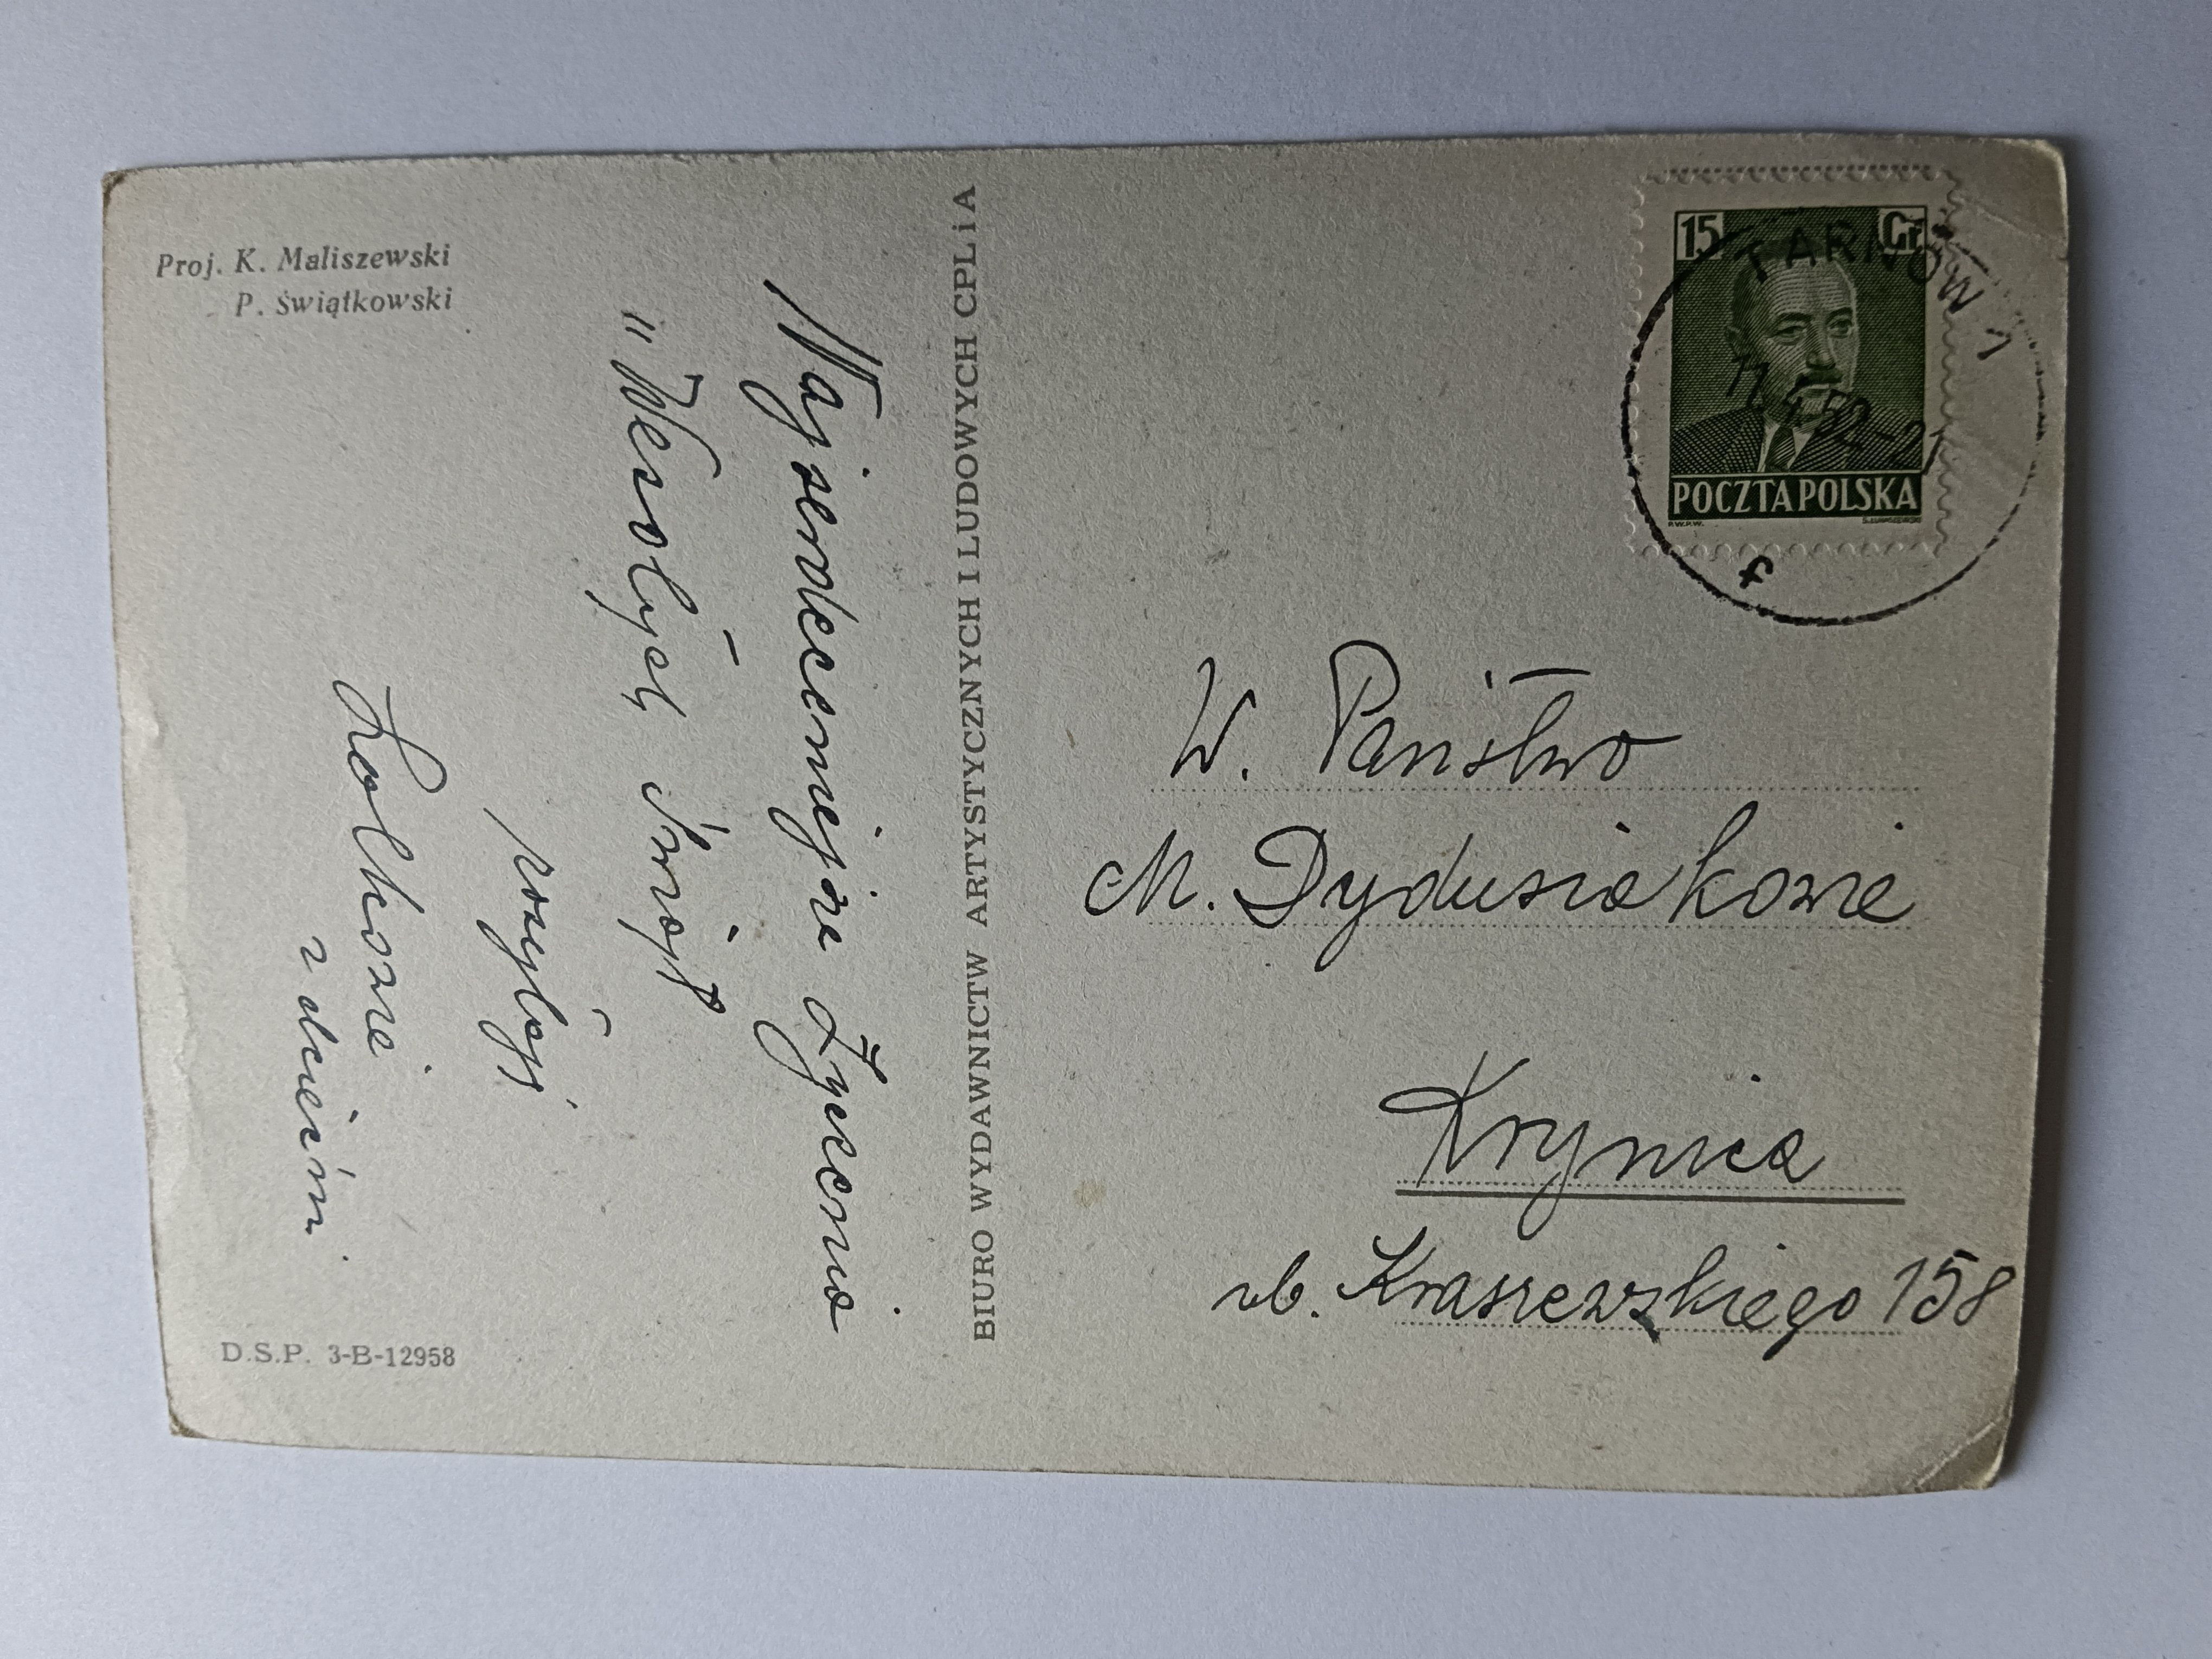 Proj. K. Maliszewski
P. Świątkowski
Najserdeczniejsze Życzenia
"Wesołych Świąt
posyłają
z dziećmi
D.S.P. 3-B-12958
BIURO WYDAWNICTW ARTYSTYCZNYCH I LUDOWYCH CPLiA
15 Gr
POCZTA POLSKA
TARNÓW 1
f
W. Państwo
M. Dydusiakowie
Krynica
ul. Kraszewskiego 158